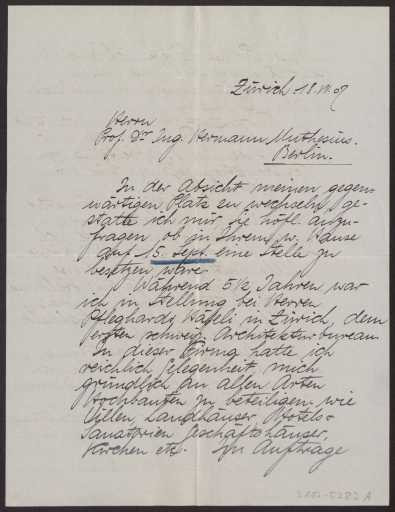 Zürich 18.VII.07
Herrn
Prof. Dr Ing. Hermann Muthesius.
Berlin.
In der Absicht meinen gegen-
wärtigen Platz zu wechseln, ge-
statte ich mir Sie höfl. anzu-
fragen, ob in Ihrem w. Hause
auf 15. Sept. eine Stelle zu
besetzen wäre.
Während 5½ Jahren war
ich in Stellung bei Herren
Pfleghard & Häfeli in Zürich, dem
ersten schweiz. Architekturbureau.
In dieser Firma hatte ich
reichlich Gelegenheit, mich
gründlich an allen Arten
Hochbauten zu beteiligen wie
Villen, Landhäuser, Hotels-
Sanatorien Geschäftshäuser,
Kirchen etc. Im Auftrage